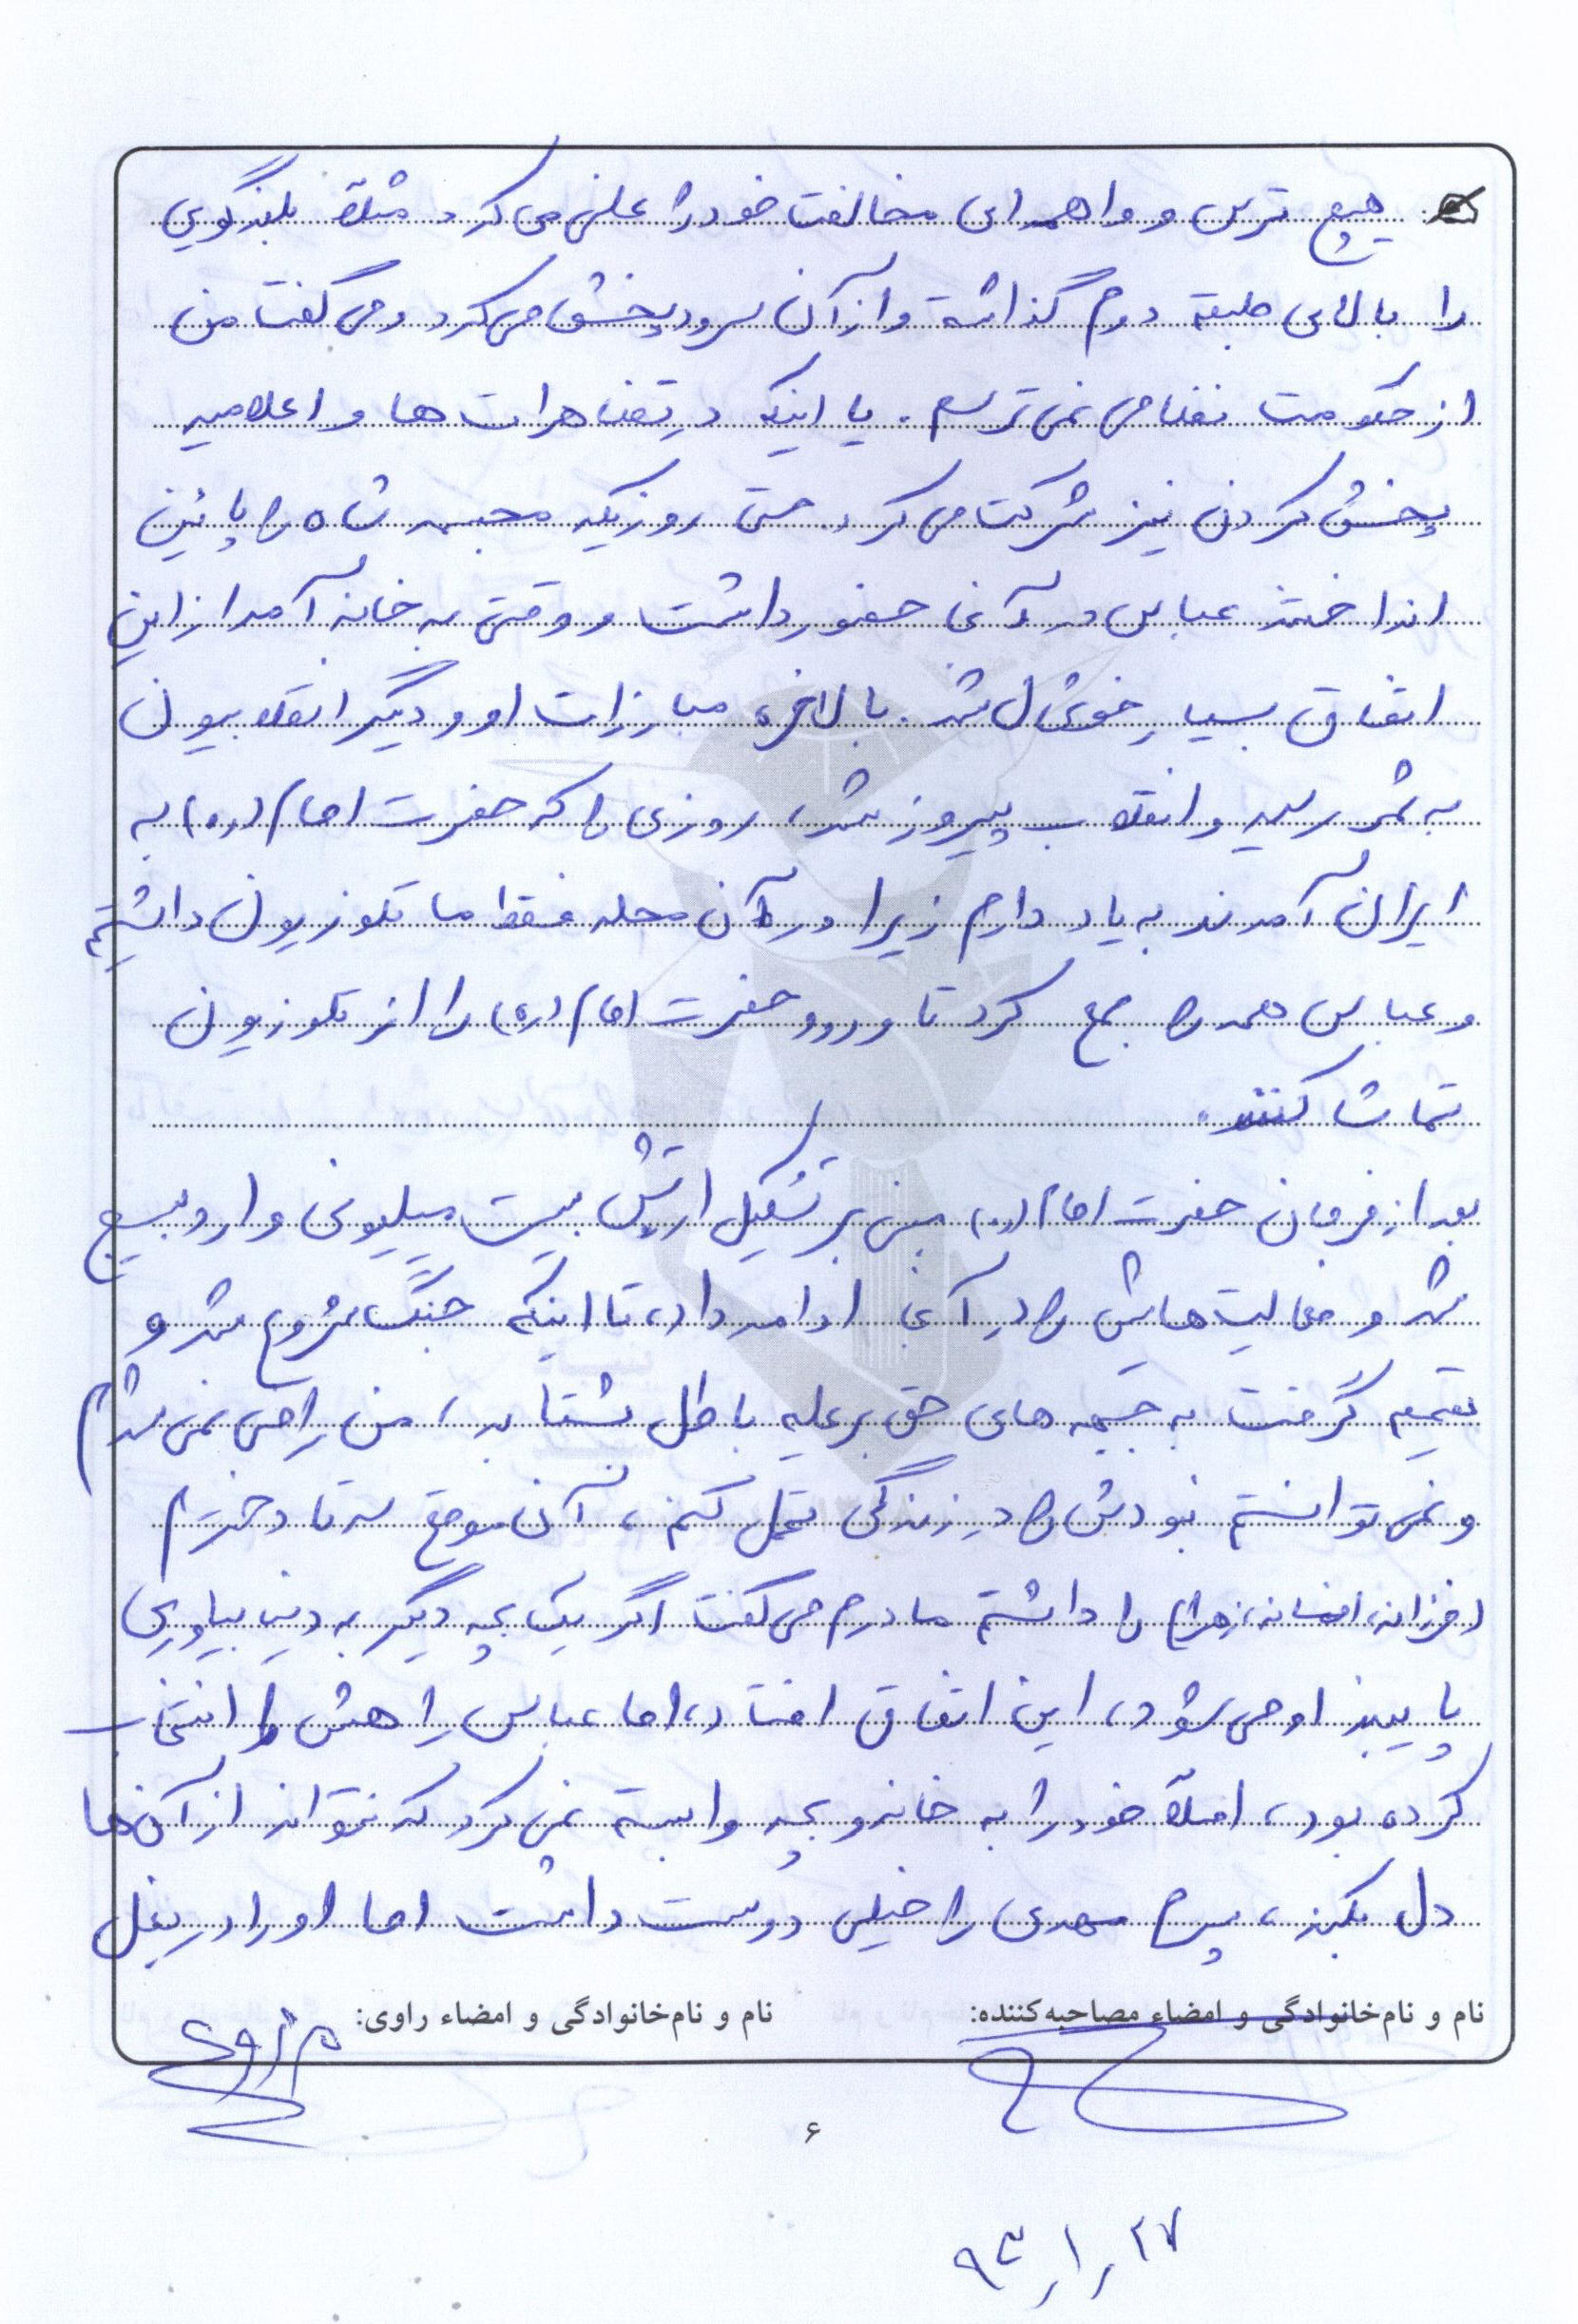 هیچ ترس و واهمه‌ای مخالفت خود را علنی می‌کرد مثلاً بلندگویی
را بالای طبقه دوم گذاشته و از آن سرود پخش می‌کرد و می گفت من
از حکومت نظامی نمی ترسم. یا اینکه در تظاهرات ها و اعلامیه
پخش کردن نیز شرکت می کرد. حتی روزیکه مجسمه شاه را پائین
انداختند عباس در آنجا حضور داشت و وقتی به خانه آمد از این
اتفاق بسیار خوشحال شد. بالاخره مبارزات او و دیگر انقلابیون
به ثمر رسید و انقلاب پیروز شد، روزی را که حضرت امام (ره) به
ایران آمدند به یاد دارم زیرا در آن محله فقط ما تلوزیون داشتیم
و عباس همه را جمع کرد تا ورود حضرت امام (ره) را از تلوزیون
تماشا کنند.
بعد از فرمان حضرت امام (ره) مبنی بر تشکیل ارتش بیست میلیونی وارد بسیج
شد و فعالیت هایش را در آنجا ادامه داد، تا اینکه جنگ شروع شد و
تصمیم گرفت به جبهه های حق بر علیه باطل بشتابد، من راضی نمی شدم
و نمی توانستم نبودش را در زندگی تحمل کنم، آن موقع سه تا دخترم
(فرزانه، افسانه، زهرا) را داشتم مادرم می گفت اگر یک بچه دیگر به دنیا بیاوری
پایبند او می شود، این اتفاق افتاد، اما عباس راهش را انتخاب
کرده بود، اصلاً خود را به خانه و بچه وابسته نمی کرد که نتواند از آن ها
دل بکند، پسرم مهدی را خیلی دوست داشت اما او را در بغل
نام و نام‌خانوادگی و امضاء مصاحبه‌کننده:
نام و نام‌خانوادگی و امضاء راوی:
۶
۹۳/۱/۲۷